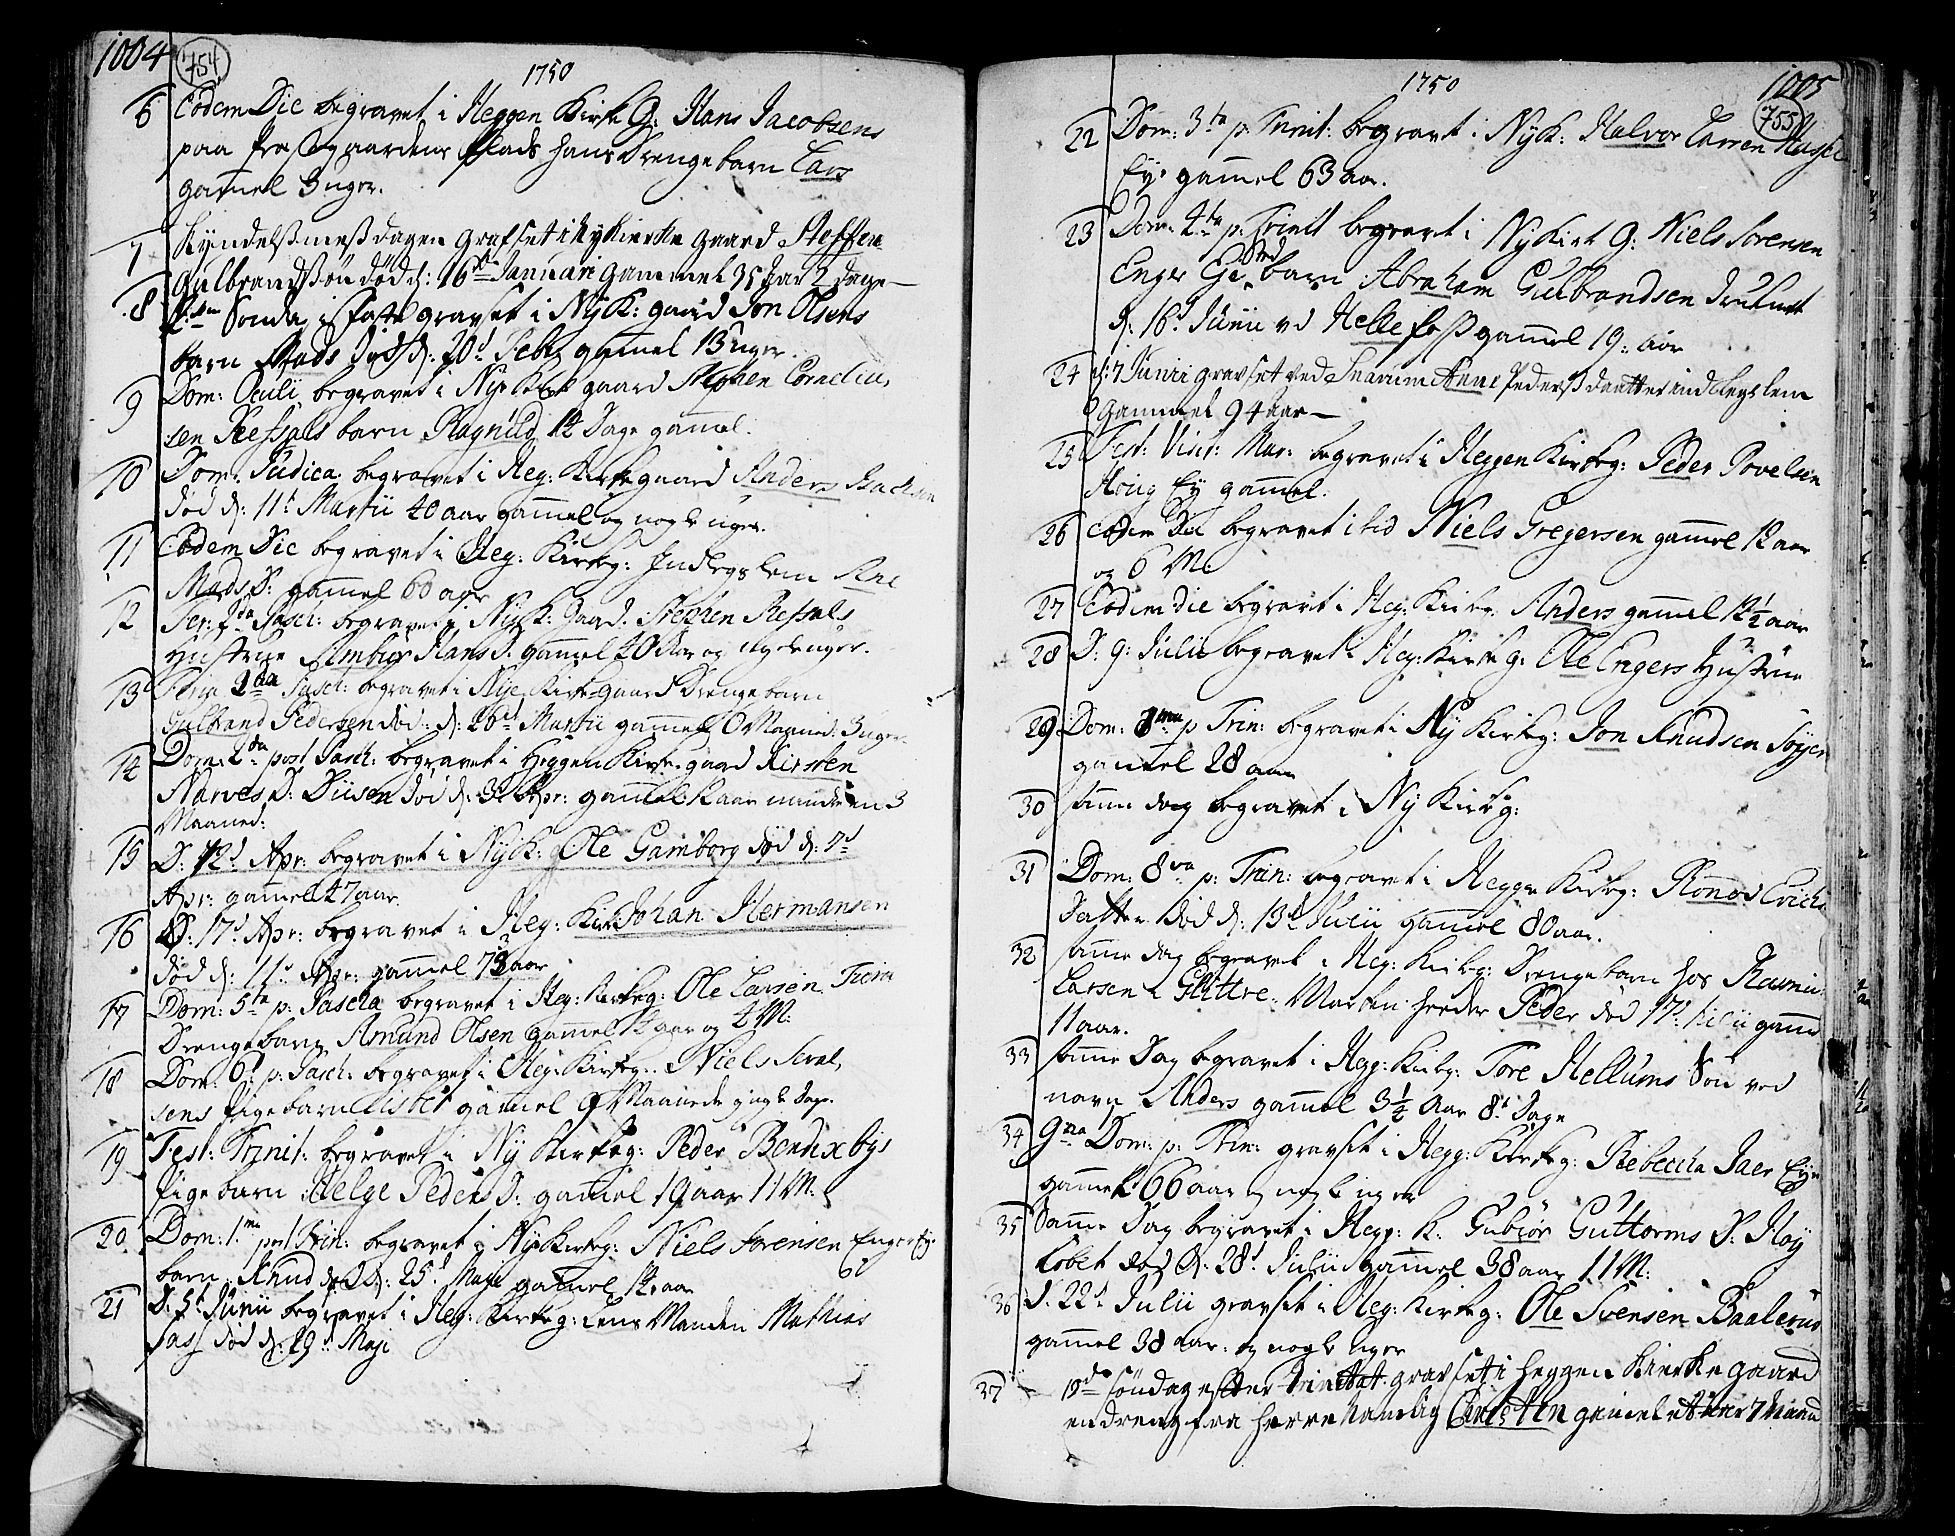 1004 754
1750
6 Eodem Die begravet i Heggen Kirke G: Hans Jacobsens
paa Præstegaardens plads hans Drengebarn Lars
gamel 3 uger.
7 Kyndelsmess dagen grafset i Nykircke gaard Steffen
Gulbrandssøn død d: 16de Januari gammel 35 Aar 2 dage
8 Sønda i faste gravset i Nyk: gaard Jon Olsens
barn Mads død d: 20d Febr gamel 13 uger.
9 Dom: Oculi begravet i Nye Kirke gaard Stephen Cornelius
sen Ræfsals barn Ragnild 14 Dage gamel.
10 Dom: Judica begravet i Heg: Kirkegaard Anders
død d: 11t Martii 40 aar gammel og nogle uger.
11 Eodem Die begravet i Heg: Kirkeg: Indlegslem
Mads D: gammel 60 aar
12 Fer: Pasch: begravet i Nyk: Gaard: Stephen Refsals
Hustrue Ambior Hans D. gammel 40 Aar og nogle uger.
13 Feria 2da Pasch: begravet i Nye Kirkegaard Drengebarn
Gulbrand Pedersen død: d: 26d Martii gammel 6 Maaned: 3 uger.
14 Dom: 2da post Pasch: begravet i Heggen Kirke gaard Kirsten
Narves D: Diisen død d: 3 Apr: gammel aar mindre en 3
Maaned:
15 D: 12d Apr: begravet i Nyk: g Ole Gamborg død d: 7d
Apr: gammel 47 aar
16 D: 17d Apr: begravet i Heg: Kirk: Johan Hermansen
død d: 11d Apr: gammel 73 aar
17 Dom: 5ta p: Pascha begravet i Heg: Kirkeg: Ole Larsen
Drengebarn Amund Olsen gammel aar og 4 M:
18 Dom: 6t p: Pasch: begravet i Heg: Kirkeg: Niels
sens Pigebarn Lisbet gamel 9 Maaneder 3 nogle Dage.
19 Fest: Trinit: begravet i Ny Kirkeg: Peder Bendixbys
Pigebarn Helge Peders D: gammel 19 aar 11 M:
20 Dom: 1ma post Trin: begravet i Nye Kirkeg: Niels Sørensen Enger Eje
barn Knud død d: 25d Maji gammel aar
21 D: 5t Junii begravet i Heg: Kirkeg: Lens Manden Mathias
Fass død d: 29d Maji
1750
1005 755
22 Dom: 3tia p: Trinit: begravet i Nyk: Halvor Larsen
Eye gammel 63 aar.
23 Dom: 4ta p: Trinit begravet i Ny Kirk G: Niels Sorensen
Enger Ge barn Abraham Gulbrandsen druknet
d: 16d Junii ved Hellefoss gammel 19: Aar
24 d: 7 Junii gravset ved Snarum Anne Pederss daatter indlegslem
gammel 94 aar
25 Fest: Visit: Mar: begravet i Heggen Kirkeg: Peder Povelsen
Houg Ey gammel.
26 eodem Die begravet i hd Niels Gregersen gammel 12 aar
og 6 M:
27 Eodem die begravet i Heg: Kirkeg: Anders gammel 12 1/2 aar
28 D: 9: Julii begravet i Heg: Kirke g: Ole Engers Hustrue
29 Dom: 7ma p Trin: begravet i Ny Kirkeg: Jon Knudsen
gammel 28 aar
30 samme dag begravet i Ny Kirkg:
31 Dom: 8va p: Trin: begravet i Hegge Kirkeg: Ronnod Erichs
Datter død d: 13d Julii gammel 80 aar.
32 samme dag begravet i Heg: Kirkeg: Drengebarn hos
Larsen Glittre: Morten heeder Peder død 17d Julii gamel
11 aar.
33 samme Dag begravet i Hegg: Kirkg: Tore Hellums Søn ved
navn Anders gammel 3 1/2 Aar 8t Dage
34 9na Dom: p: Trin: gravset i Hegg: Kirkeg: Rebeccha Jaer Eye
gammel 66 aar og nogle uger
35 Samme Dag begravet i Hegg: K: Gubiør Guttorms D: Hoy
Lobet død d: 28d Julii gammel 38 aar 11 M:
36 d: 22d Julii gravset i Heg: Kirkeg: Ole Svensen Baalerud
gammel 38 aar: og nogle Uger
37 10de søndag efter trinitat: gravset i heggen kircke gaard
en dreng fra Herre namlig Christen gamel et Aar 7 Maand